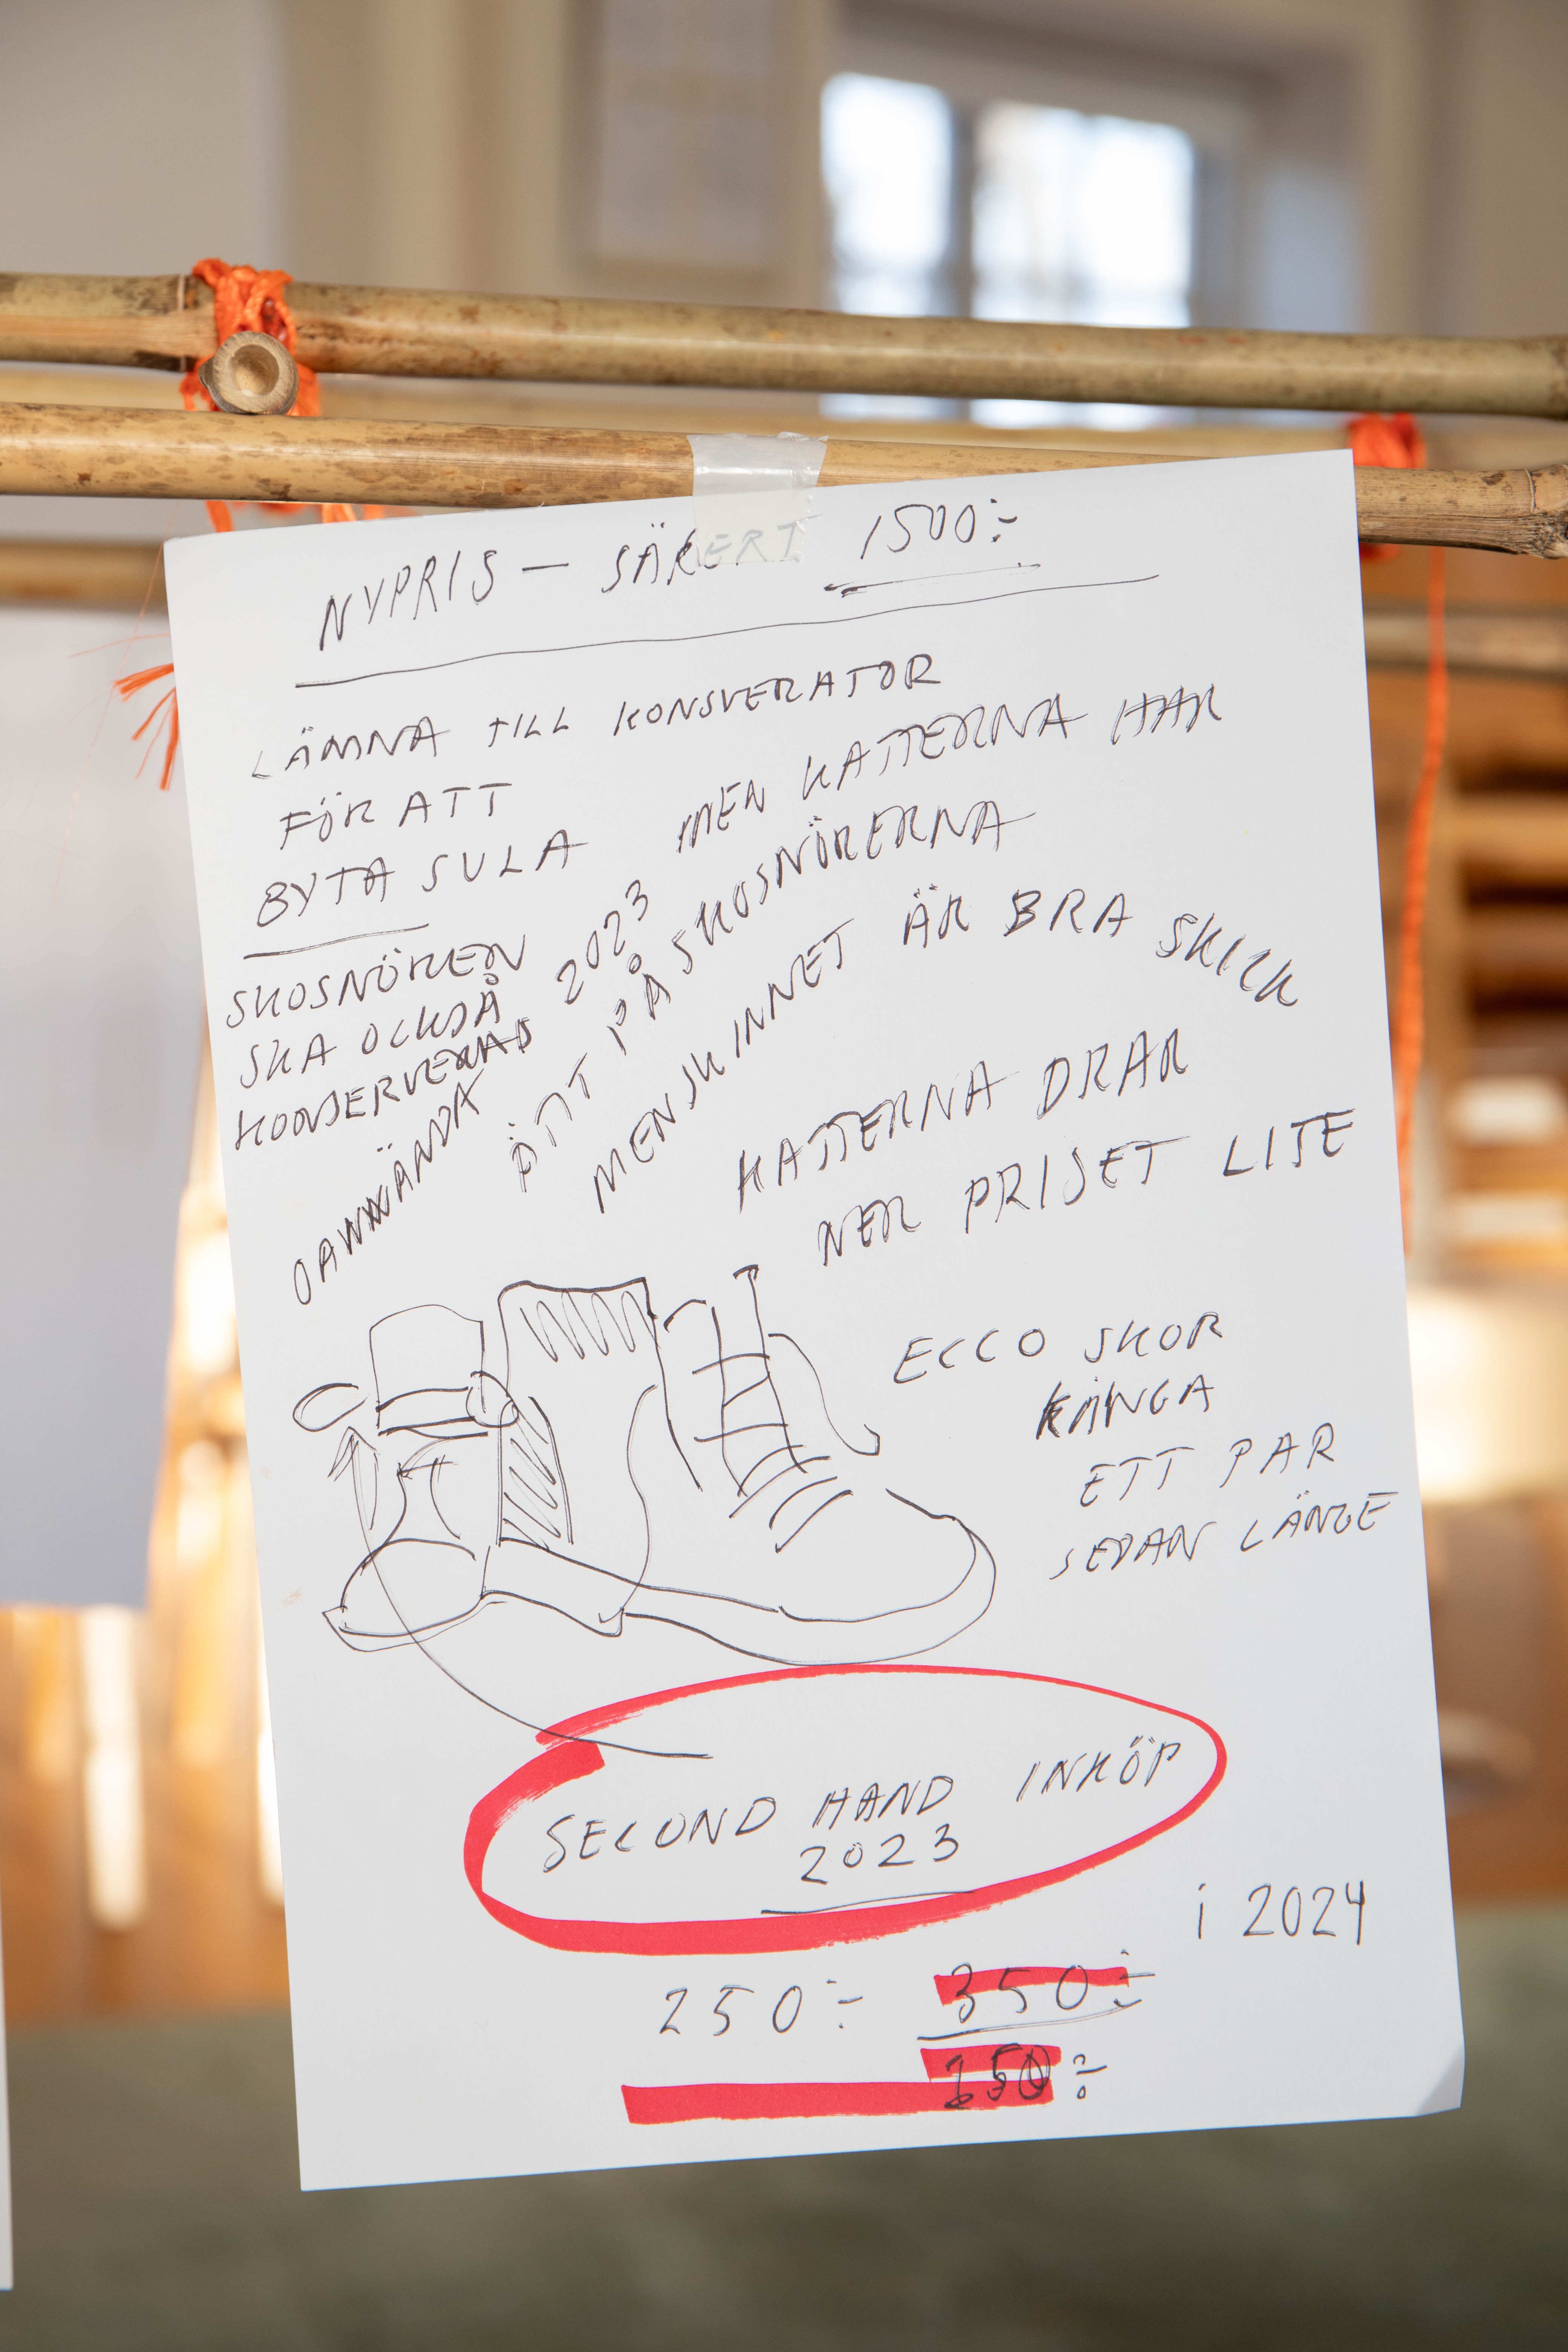 NYPRIS — SÄKERT 1500:-
LÄMNA TILL KONSVERATOR
FÖR ATT
BYTA SULA
SKOSNÖREN
SKA OCKSÅ
KONSERVERAS
OANVÄNDA 2023 MEN KATTERNA HAR
ÄTIT PÅ SKOSNÖRERNA
MEN SKINNET ÄR BRA SKICK
KATTERNA DRAR
NER PRISET LITE
ECCO SKOR
KÄNGA
ETT PAR
SEDAN LÄNGE
SECOND HAND INKÖP
2023
i 2024
250:- 350:-
150:-